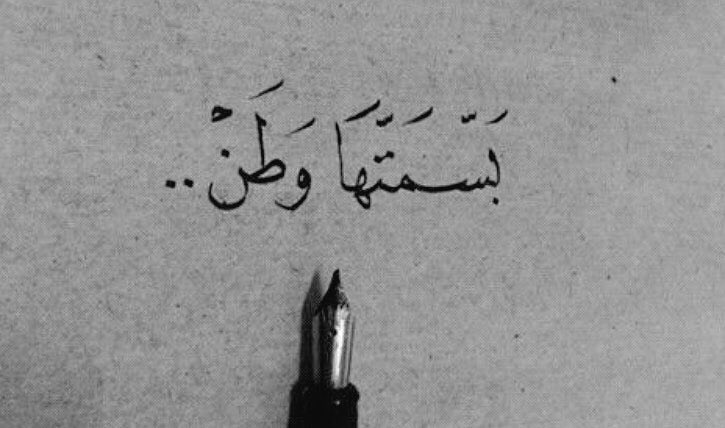 بَسّمَتَّهَا وَطَنْ ..